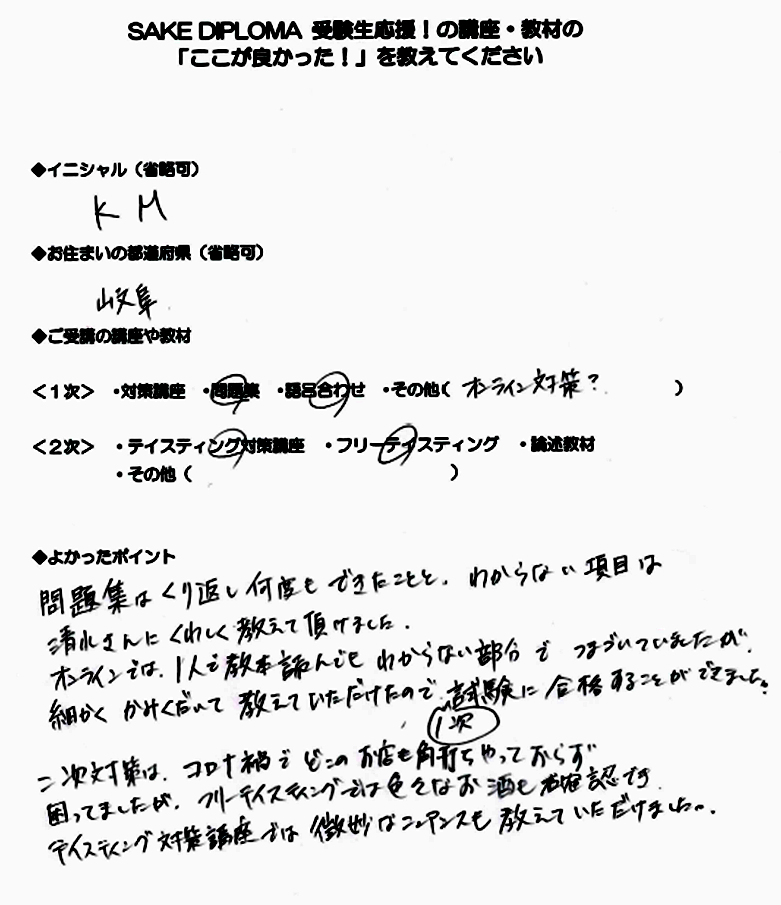 SAKE DIPLOMA 受験生応援!の講座・教材の
「ここが良かった!」を教えてください
◆イニシャル(省略可)
K M
◆お住まいの都道府県(省略可)
岐阜
◆ご受講の講座や教材
<1次> ・対策講座 ・問題集 ・語呂合わせ ・その他( オンライン対策? )
<2次> ・テイスティング対策講座 ・フリーテイスティング ・論述教材
・その他( )
◆よかったポイント
問題集はくり返し何度もできたことと、わからない項目は
清水さんにくわしく教えて頂けました。
オンラインでは、1人で教本読んでもわからない部分でつまづいていましたが、
細かくかみくだいて教えていただけたので、試験に合格することができました。
1次
二次対策は、コロナ禍でどこのお店も角打ちやっておらず
困ってましたが、フリーテイスティングでは色々なお酒も確認でき
テイスティング対策講座では微妙なニュアンスも教えていただけました。